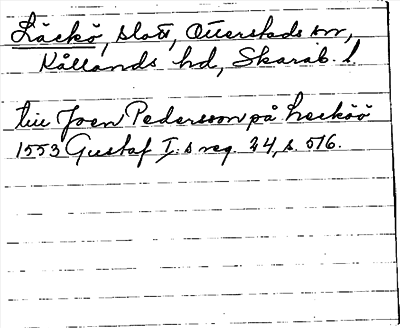 Läckö, slott, Otterstads sn,
Kållands hd, Skarab. l
till Joen Pedersson på Lecköö
1553 Gustaf I:s reg. 24, s. 516.